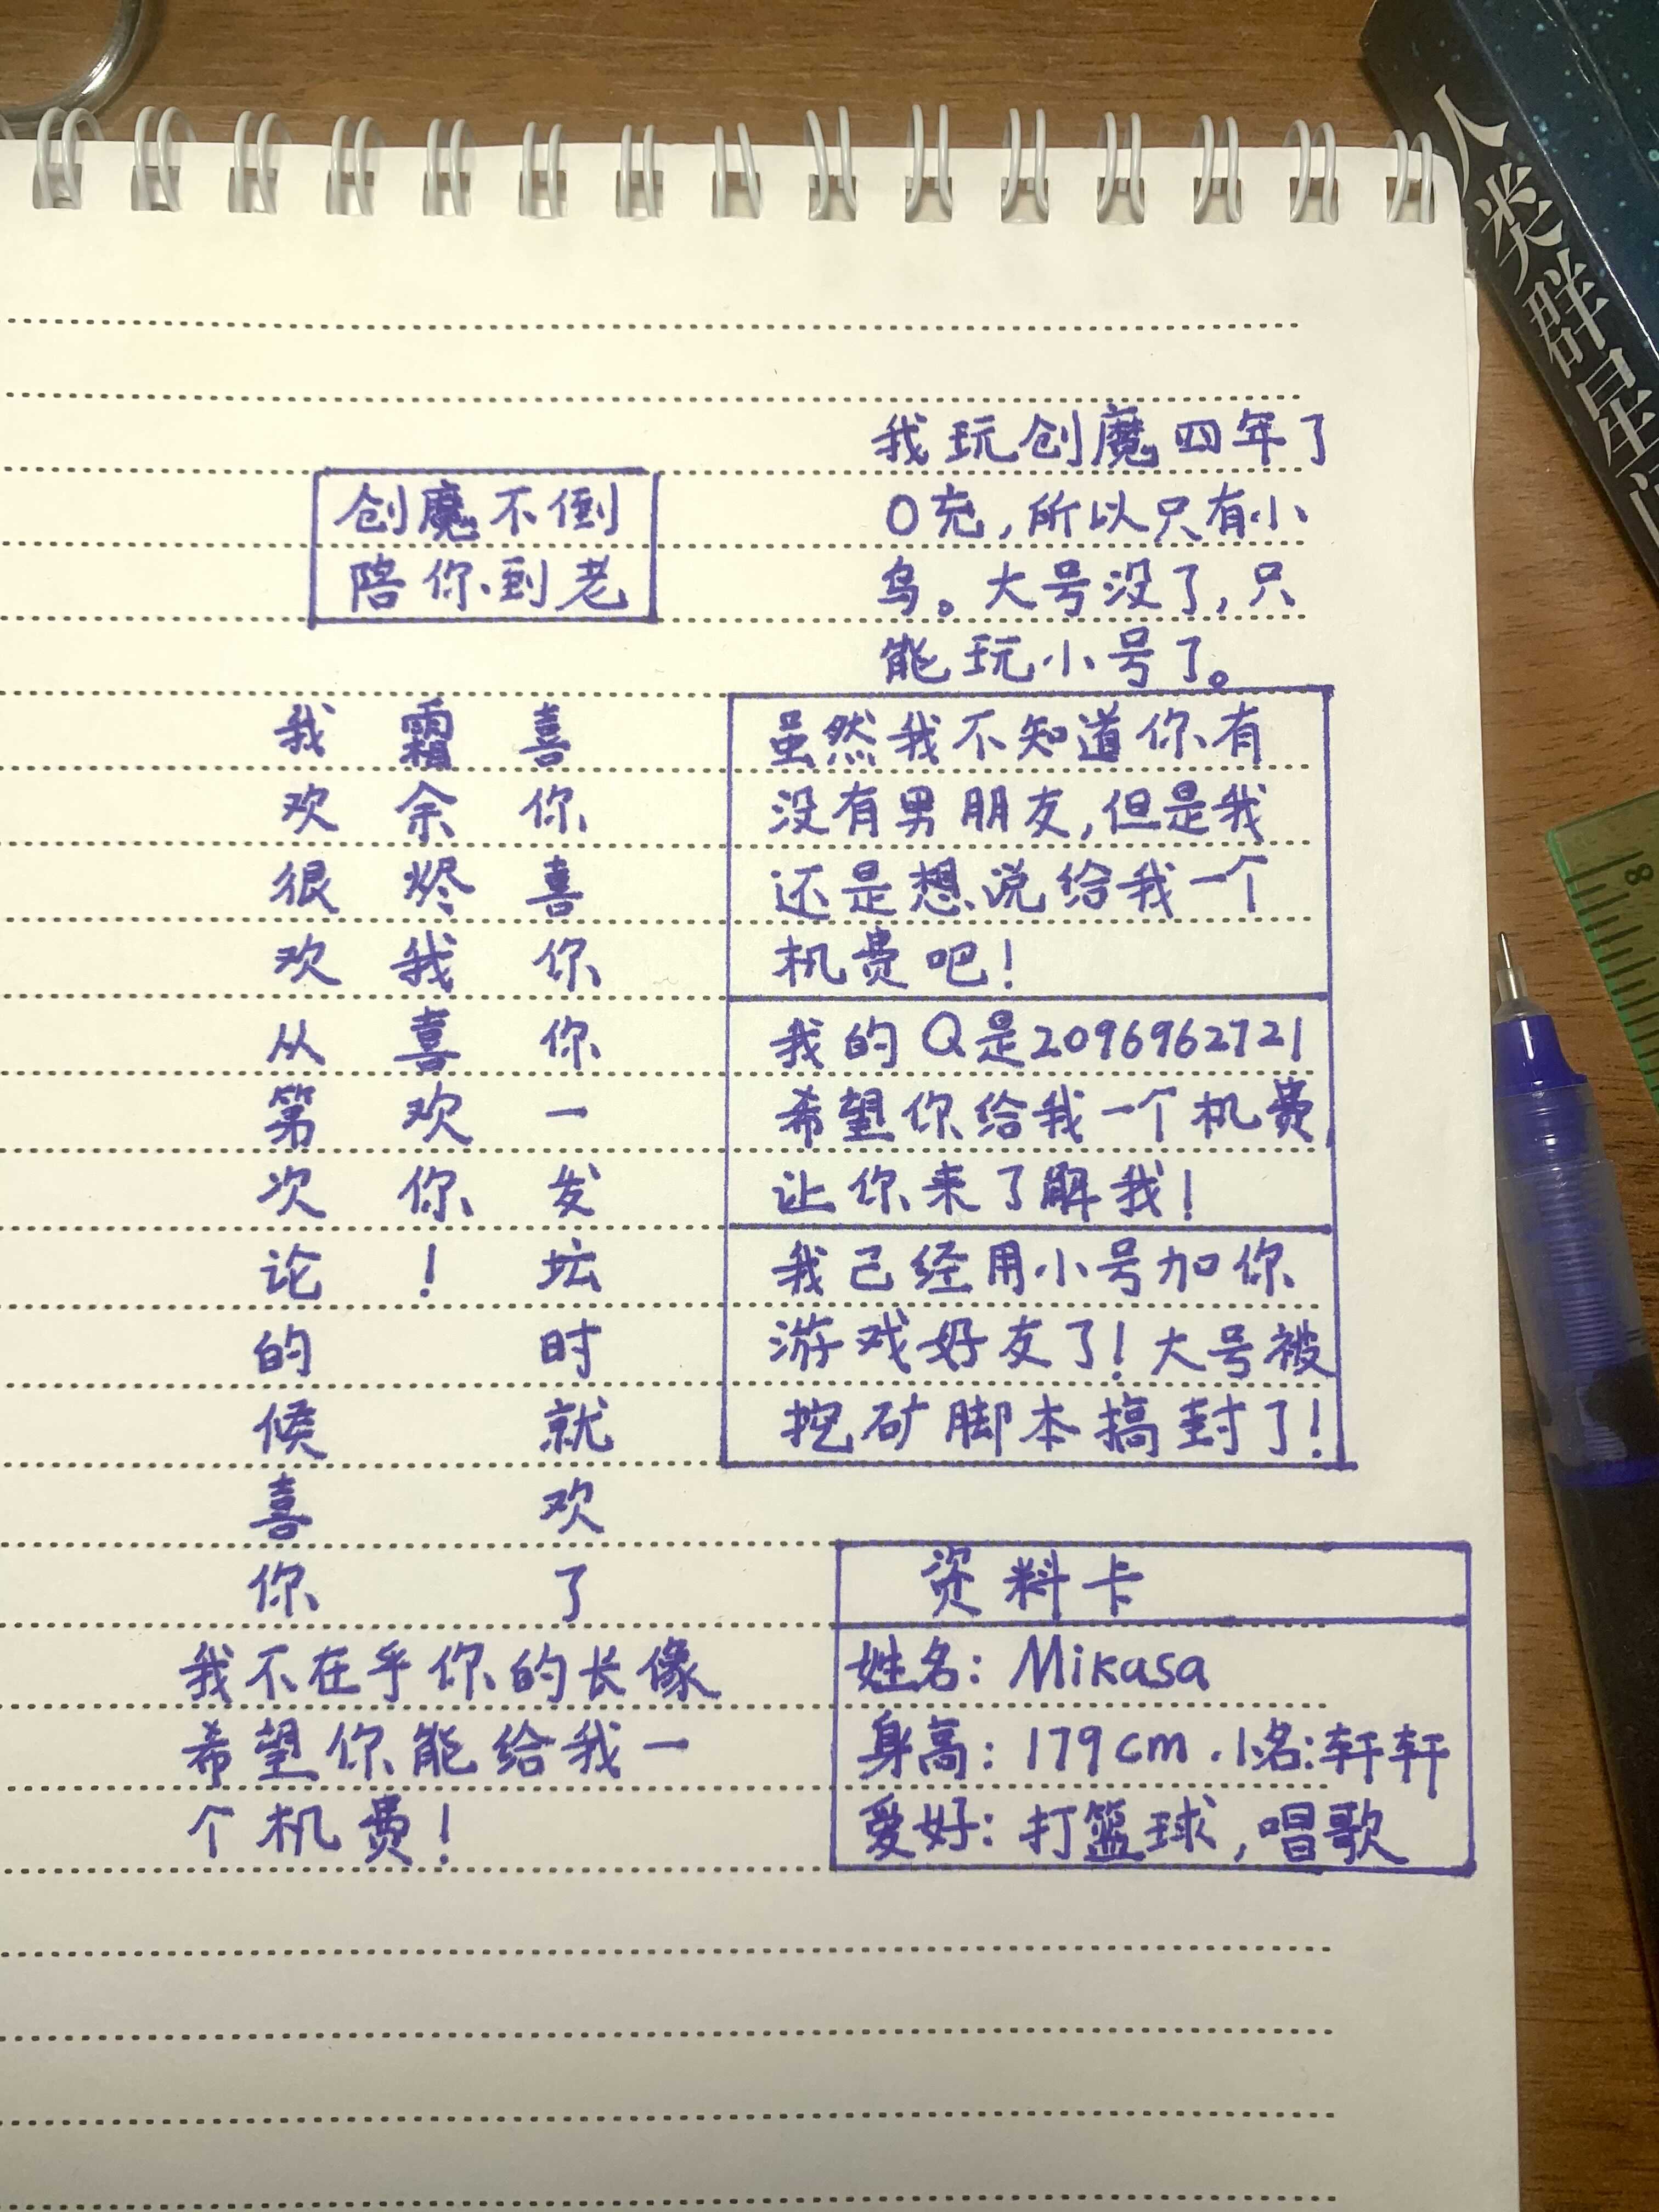 人类群星
我玩创魔四年了
0充,所以只有小
乌。大号没了,只
能玩小号了。
创魔不倒
陪你到老
我 霜 喜
欢 余 你
很 烬 喜
欢 我 你
从 喜 你
第 欢 一
次 你 发
论 ! 坛
的 时
候 就
喜 欢
你 了
我不在乎你的长像
希望你能给我一
个机费!
虽然我不知道你有
没有男朋友,但是我
还是想说给我一个
机费吧!
我的Q是2096962721
希望你给我一个机费,
让你来了解我!
我己经用小号加你
游戏好友了!大号被
挖矿脚本搞封了!
资料卡
姓名: Mikasa
身高: 179cm.小名:轩轩
爱好: 打篮球,唱歌
8